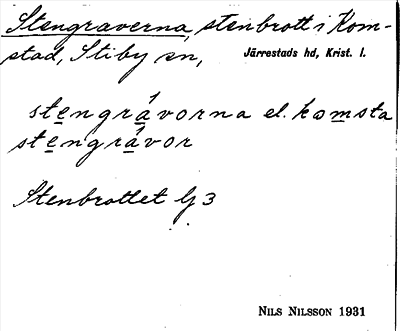 Stengraverna, stenbrott i Kom-
stad, Stiby sn, Järrestads hd, Krist. l.
stengrávorna el. komsta
stengrávor
Stenbrottet G 3
NILS NILSSON 1931